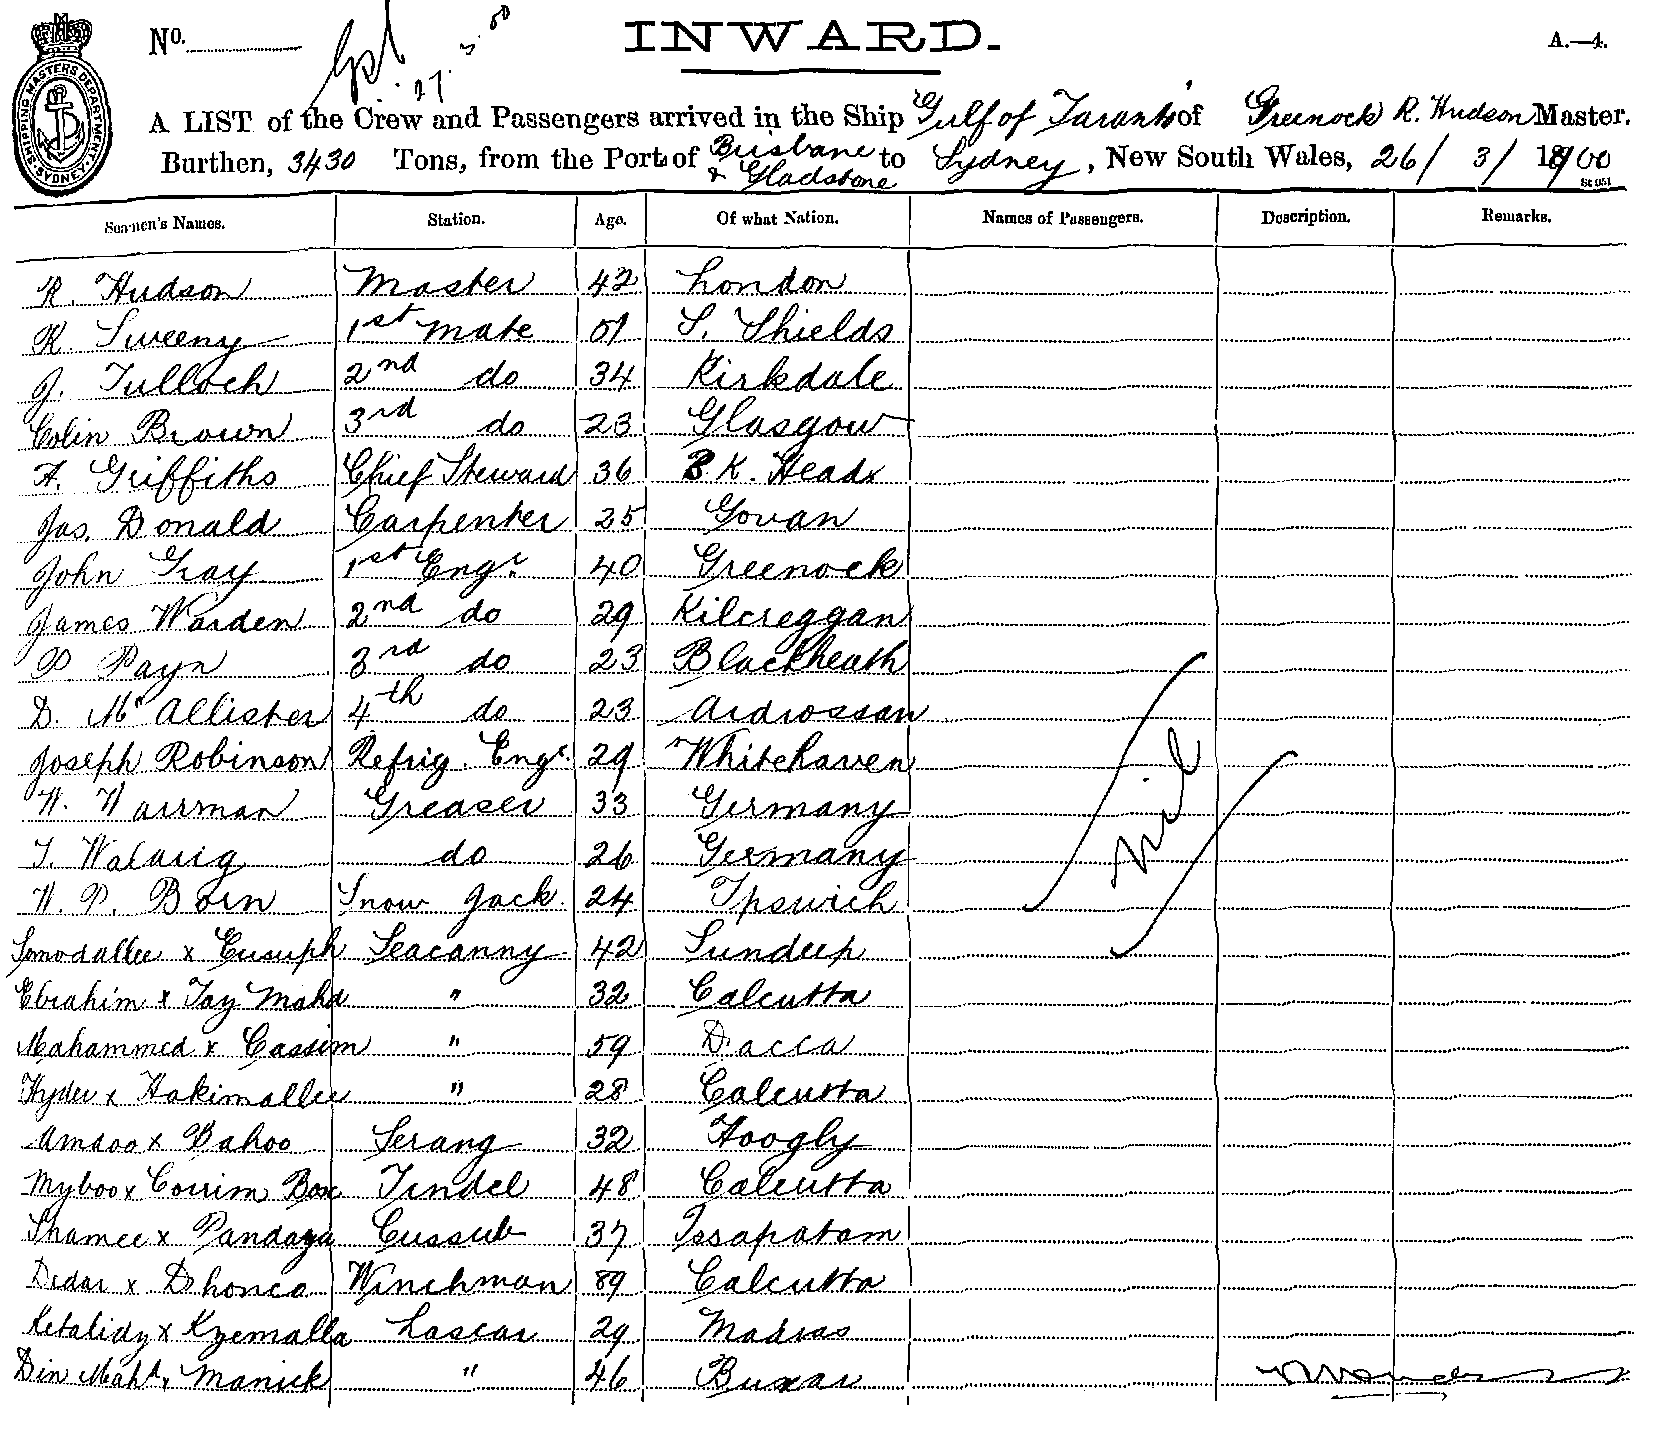 No.
27. 3. 00
INWARD.
A.—4.
SHIPPING MASTERS DEPARTMENT. SYDNEY.
A LIST of the Crew and Passengers arrived in the Ship Gulf of Taranto of Greenock R. Hudson Master.
Burthen, 3430 Tons, from the Port of Brisbane & Gladstone to Sydney, New South Wales, 26/3/1900
Seamen's Names. Station. Age. Of what Nation. Names of Passengers. Description. Remarks.
R. Hudson Master 42 London
R. Sweeny 1st Mate 51 S. Shields
J. Tulloch 2nd do 34 Kirkdale
Colin Brown 3rd do 23 Glasgow
A. Griffiths Chief Steward 36 B.K. Heads
Jas. Donald Carpenter 25 Govan
John Gray 1st Engr. 40 Greenock
James Warden 2nd do 29 Kilcreggan
P. Payn 3rd do 23 Blackheath
D. McAllister 4th do 23 Ardrossan
Joseph Robinson Refrig. Engr. 29 Whitehaven
W. Warrman Greaser 33 Germany
T. Walarig do 26 Germany
W. P. Born Snow Jack. 24 Ipswich
Sonodallee x Eusuph Seacanny 42 Sundeep
Ebrahim x Jay Mahd " 32 Calcutta
Mahammed x Cassim " 59 Dacca
Hyder x Hakimallee " 28 Calcutta
Amdoo x Bahoo Serang 32 Hoogly
Myboo x Corrim Box Tindel 48 Calcutta
Shamee x Pandaya Cussub 37 Issapatam
Didar x Dhonco Winchman 39 Calcutta
Ketalidy x Kyemalla Lascar 29 Madras
Din Mahd x Manick " 46 Buxar
Nil